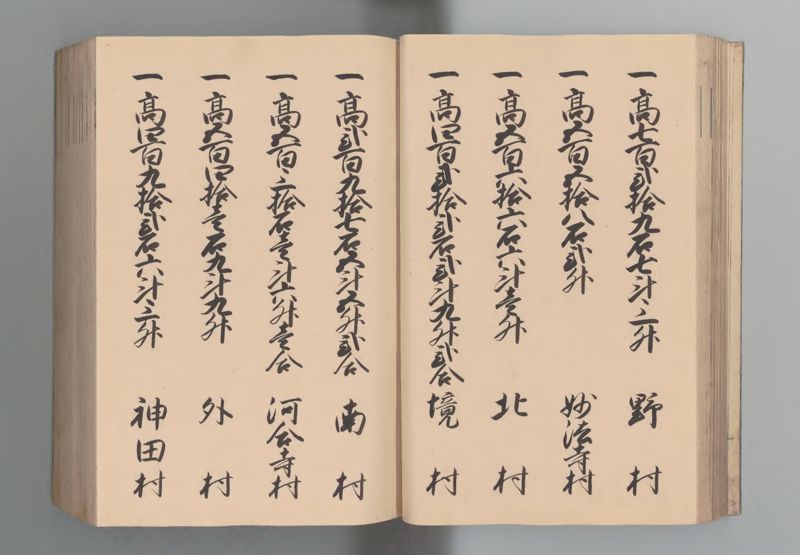 一高七百弐拾九石七斗三升 野村
一高五百五拾八石弐升 妙法寺村
一高五百六拾六石六斗壱升 北村
一高四百弐拾弐石弐斗九升弐合 境村
一高弐百九拾七石五斗五升弐合 南村
一高五百三拾石壱斗六升壱合 河合寺村
一高五百四拾壱石九斗九升 外村
一高四百九拾弐石六斗三升 神田村